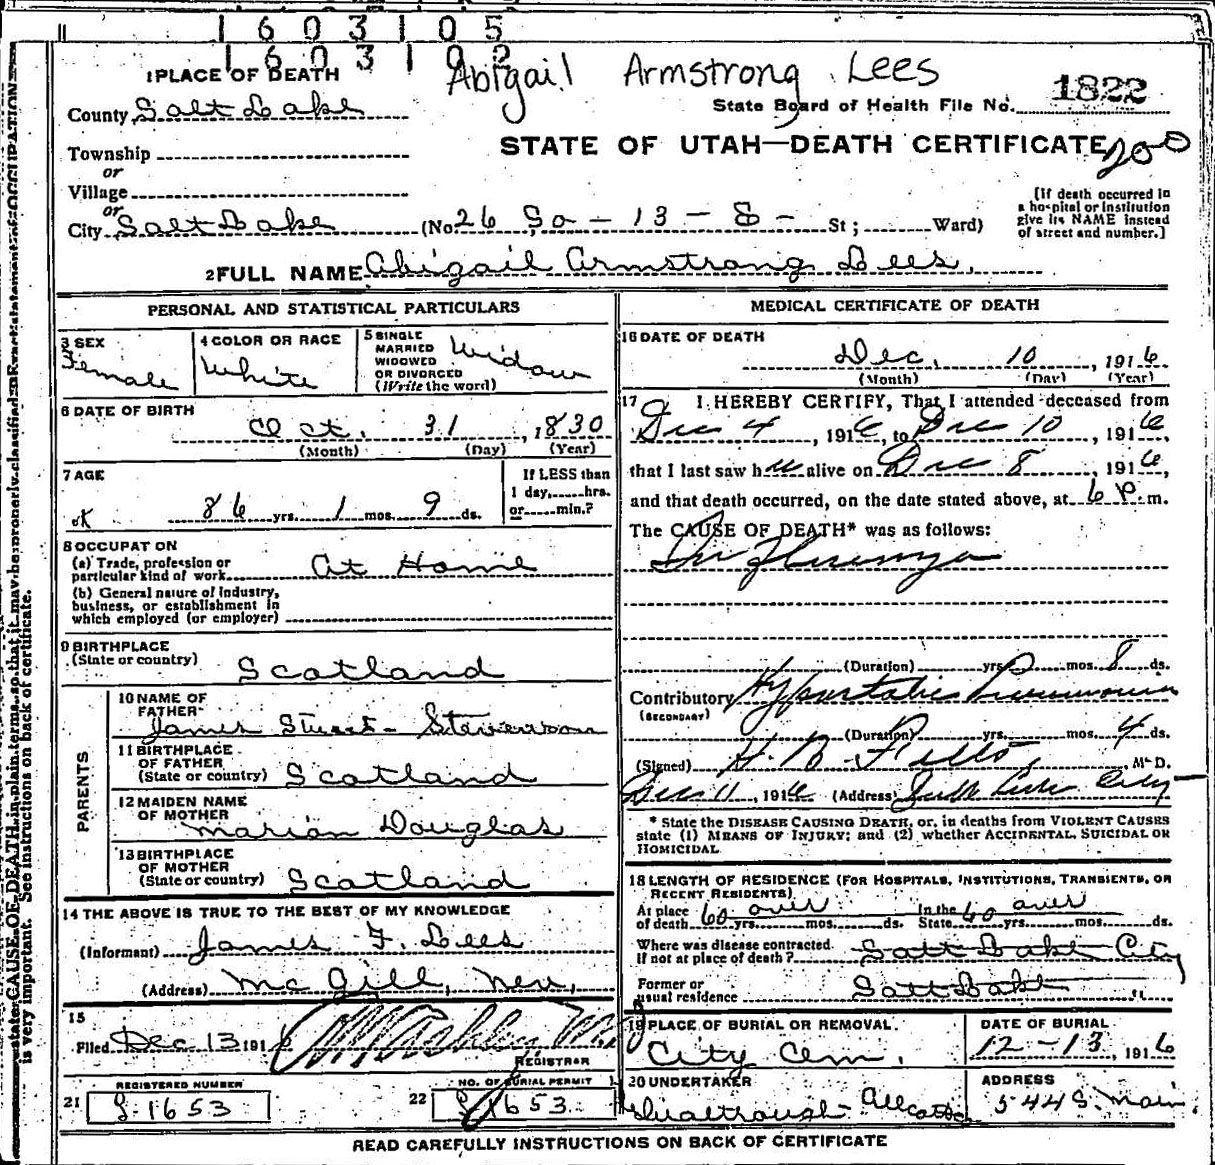 1603105
160310
Abigail Armstrong Lees
1 PLACE OF DEATH
County Salt Lake
State Board of Health File No. 1822
Township
or
Village
or
City Salt Lake (No 26 So - 13 - E - St; Ward)
STATE OF UTAH—DEATH CERTIFICATE
200
[If death occurred in
a hospital or institution
give its NAME instead
of street and number.]
2 FULL NAME Abigail Armstrong Lees.
PERSONAL AND STATISTICAL PARTICULARS
3 SEX
Female
4 COLOR OR RACE
White
5 SINGLE
MARRIED
WIDOWED
OR DIVORCED
(Write the word)
Widow
6 DATE OF BIRTH
Oct. 31, 1830
(Month) (Day) (Year)
7 AGE
ok 86 yrs. 1 mos. 9 ds.
If LESS than
1 day, hrs.
or min.?
8 OCCUPATION
(a) Trade, profession or
particular kind of work At Home
(b) General nature of industry,
business, or establishment in
which employed (or employer)
9 BIRTHPLACE
(State or country) Scotland
PARENTS
10 NAME OF
FATHER James Stuart Stevenson
11 BIRTHPLACE
OF FATHER
(State or country) Scotland
12 MAIDEN NAME
OF MOTHER Marian Douglas
13 BIRTHPLACE
OF MOTHER
(State or country) Scotland
14 THE ABOVE IS TRUE TO THE BEST OF MY KNOWLEDGE
(Informant) James F. Lees
(Address) McGill, Nev,
15
Filed Dec 13 191
REGISTRAR
REGISTERED NUMBER
21 1653
NO. OF BURIAL PERMIT
22 1653
MEDICAL CERTIFICATE OF DEATH
16 DATE OF DEATH
Dec. 10, 1916
(Month) (Day) (Year)
17 I HEREBY CERTIFY, That I attended deceased from
Dec 4, 1916, to Dec 10, 1916
that I last saw her alive on Dec 8, 1916
and that death occurred, on the date stated above, at 6 P. m.
The CAUSE OF DEATH* was as follows:
(Duration) yrs. mos. 8 ds.
Contributory Hypostatic Pneumonia
(SECONDARY)
(Duration) yrs. mos. 4 ds.
(Signed) H. N. , M. D.
Dec 11, 1916 (Address) Salt Lake City
* State the DISEASE CAUSING DEATH, or, in deaths from VIOLENT CAUSES
state (1) MEANS OF INJURY; and (2) whether ACCIDENTAL, SUICIDAL OR
HOMICIDAL.
18 LENGTH OF RESIDENCE (FOR HOSPITALS, INSTITUTIONS, TRANSIENTS, OR
RECENT RESIDENTS)
At place of death 60 over yrs. mos. ds. In the State 60 over yrs. mos. ds.
Where was disease contracted.
If not at place of death? Salt Lake City
Former or
usual residence Salt Lake "
19 PLACE OF BURIAL OR REMOVAL
City Cem.
DATE OF BURIAL
12-13, 1916
20 UNDERTAKER
ADDRESS
544 S. Main.
READ CAREFULLY INSTRUCTIONS ON BACK OF CERTIFICATE
state CAUSE OF DEATH in plain terms, so that it may be properly classified. Exact statement of OCCUPATION
is very important. See instructions on back of certificate.